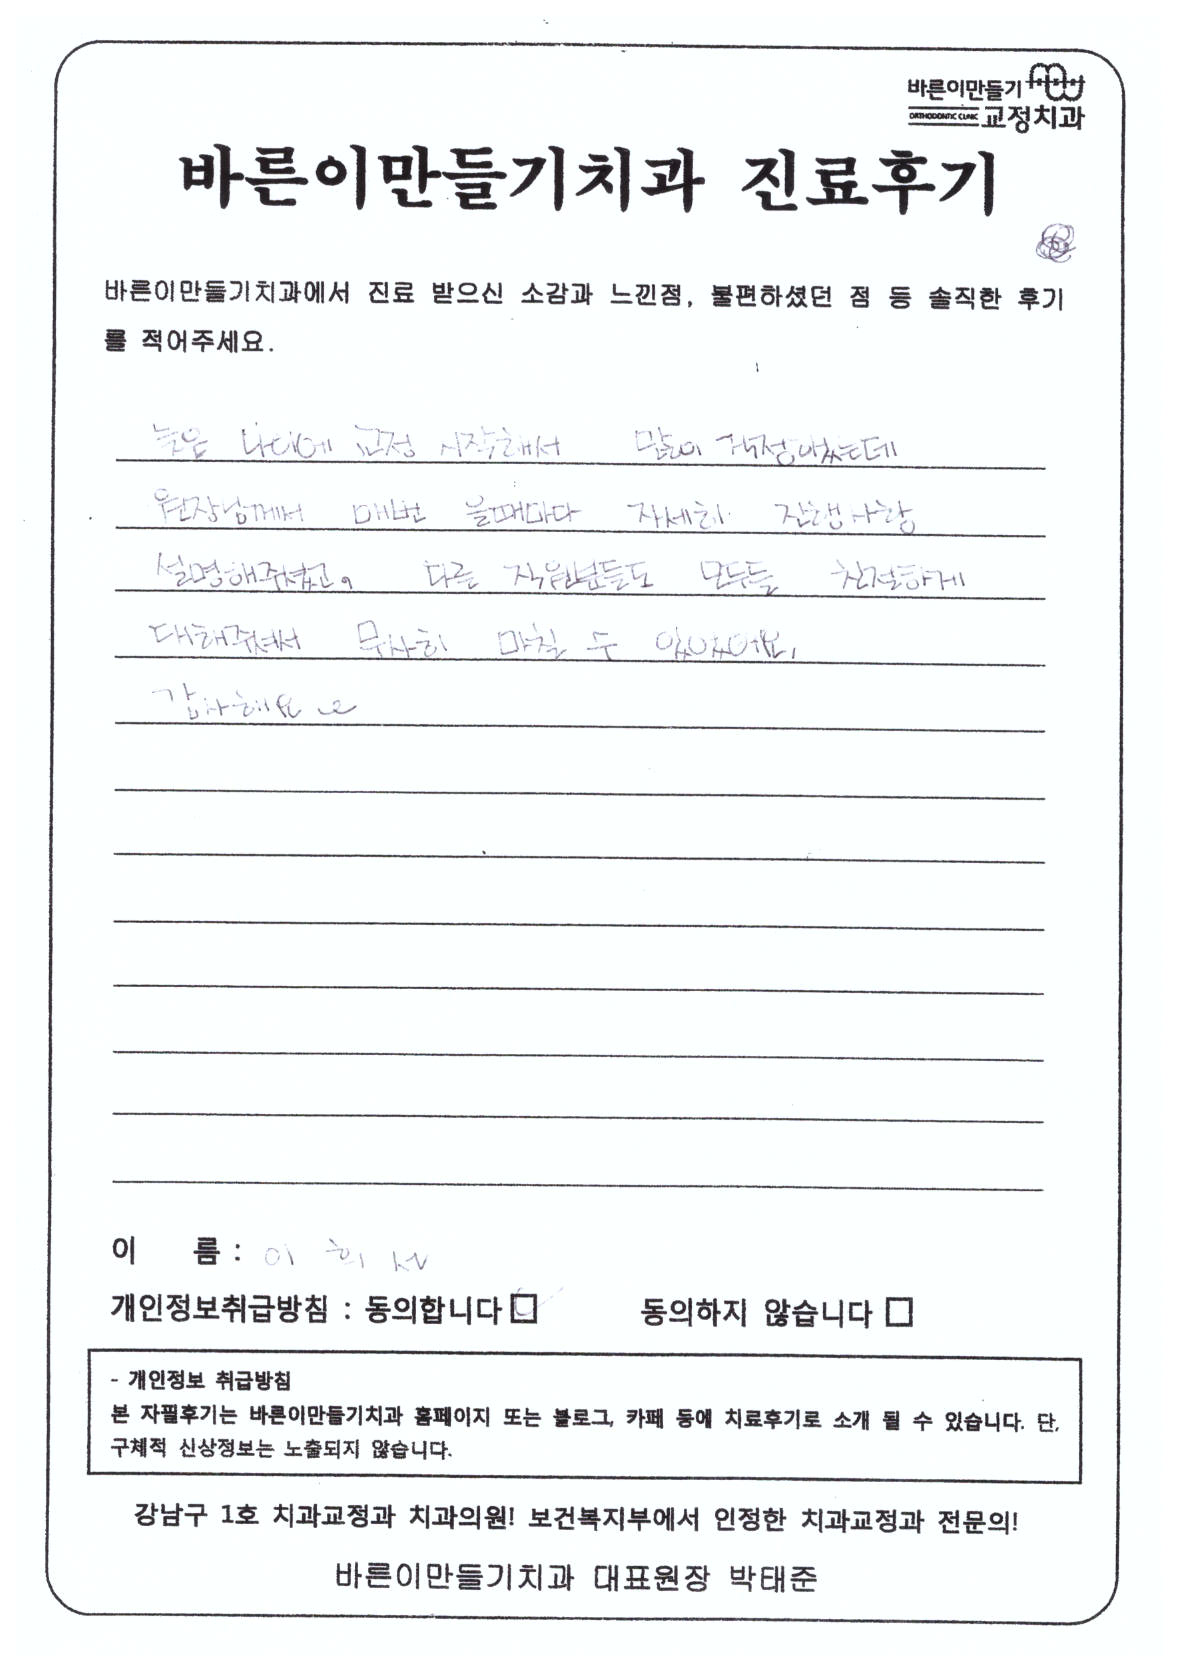 바른이만들기
ORTHODONTIC CLINIC 교정치과
바른이만들기치과 진료후기
바른이만들기치과에서 진료 받으신 소감과 느낀점, 불편하셨던 점 등 솔직한 후기
를 적어주세요.
늦은 나이에 교정 시작해서 많이 걱정이었는데
원장님께서 매번 올때마다 자세히 진행사항
설명해주셨고, 다른 직원분들도 모두들 친절하게
대해주셔서 무사히 마칠 수 있었어요.
감사해요
이 름 : 이 희
개인정보취급방침 : 동의합니다 □ 동의하지 않습니다 □
- 개인정보 취급방침
본 자필후기는 바른이만들기치과 홈페이지 또는 블로그, 카페 등에 치료후기로 소개 될 수 있습니다. 단,
구체적 신상정보는 노출되지 않습니다.
강남구 1호 치과교정과 치과의원! 보건복지부에서 인정한 치과교정과 전문의!
바른이만들기치과 대표원장 박태준